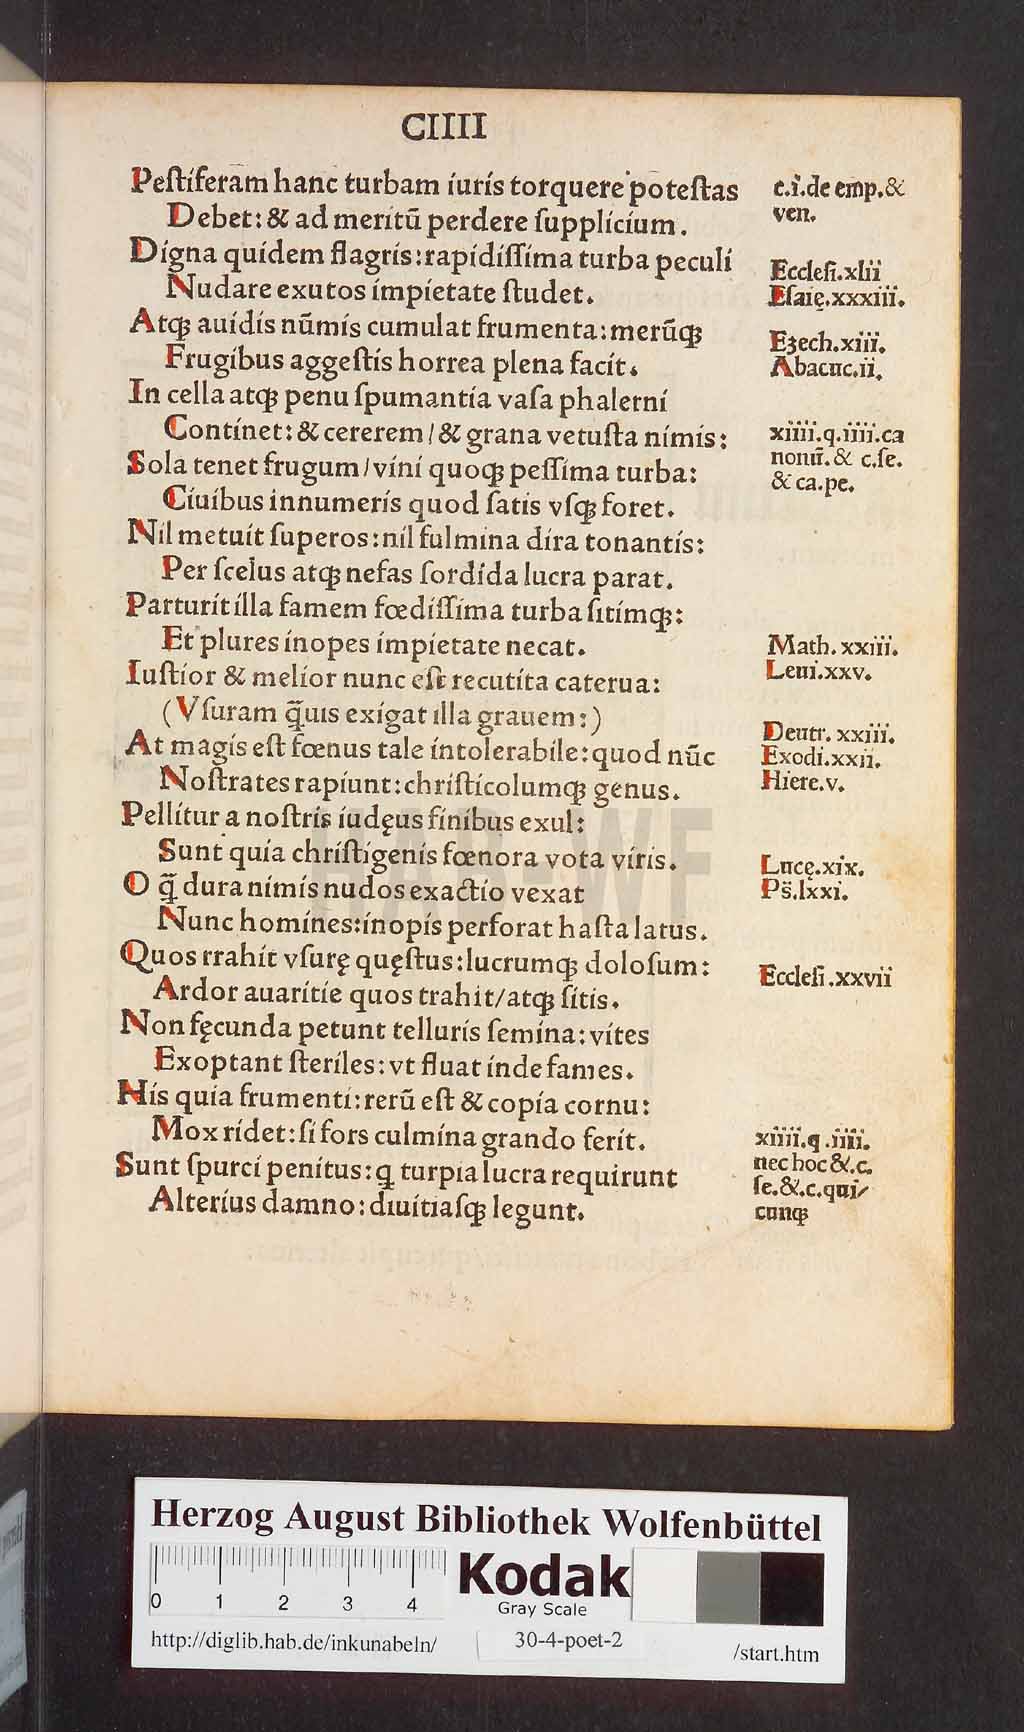 CIIII
Peſtiferam hanc turbam iuris torquere poteſtas
Debet: & ad meritū perdere ſupplicium.
Digna quidem flagris: rapidiſſima turba peculi
Nudare exutos impietate ſtudet.
Atqꝫ auidis nūmis cumulat frumenta: merūqꝫ
Frugibus aggeſtis horrea plena facit.
In cella atqꝫ penu ſpumantia vaſa phalerni
Continet: & cererem / & grana vetuſta nimis:
Sola tenet frugum / vini quoqꝫ peſſima turba:
Ciuibus innumeris quod ſatis vſqꝫ foret.
Nil metuit ſuperos: nil fulmina dira tonantis:
Per ſcelus atqꝫ nefas ſordida lucra parat.
Parturit illa famem fœdiſſima turba ſitimqꝫ:
Et plures inopes impietate necat.
Iuſtior & melior nunc eſt recutita caterua:
(Vſuram q̃uis exigat illa grauem:)
At magis eſt fœnus tale intolerabile: quod nūc
Noſtrates rapiunt: chriſticolumqꝫ genus.
Pellitur a noſtris iudęus finibus exul:
Sunt quia chriſtigenis fœnora vota viris.
O q̃ dura nimis nudos exactio vexat
Nunc homines: inopis perforat haſta latus.
Quos rrahit vſurę quęſtus: lucrumqꝫ doloſum:
Ardor auaritie quos trahit / atqꝫ ſitis.
Non fęcunda petunt telluris ſemina: vites
Exoptant ſteriles: vt fluat inde fames.
His quia frumenti: rerū eſt & copia cornu:
Mox ridet: ſi fors culmina grando ferit.
Sunt ſpurci penitus: ꝗ turpia lucra requirunt
Alterius damno: diuitiaſqꝫ legunt.
c.i.de emp.&
ven.
Eccleſi.xlii
Eſaię.xxxiii.
Ezech.xiii.
Abacuc.ii.
xiiii.q.iiii.ca
nonū.& c.ſe.
& ca.pe.
Math. xxiii.
Leui.xxv.
Deutr. xxiii.
Exodi.xxii.
Hiere.v.
Lucę.xix.
Ps̄.lxxi.
Eccleſi.xxvii
xiiii.q.iiii.
nec hoc &.c.
ſe.&.c.qui/
cunqꝫ
HAB-WF
Herzog August Bibliothek Wolfenbüttel
0 1 2 3 4
Kodak
Gray Scale
http://diglib.hab.de/inkunabeln/
30-4-poet-2
/start.htm